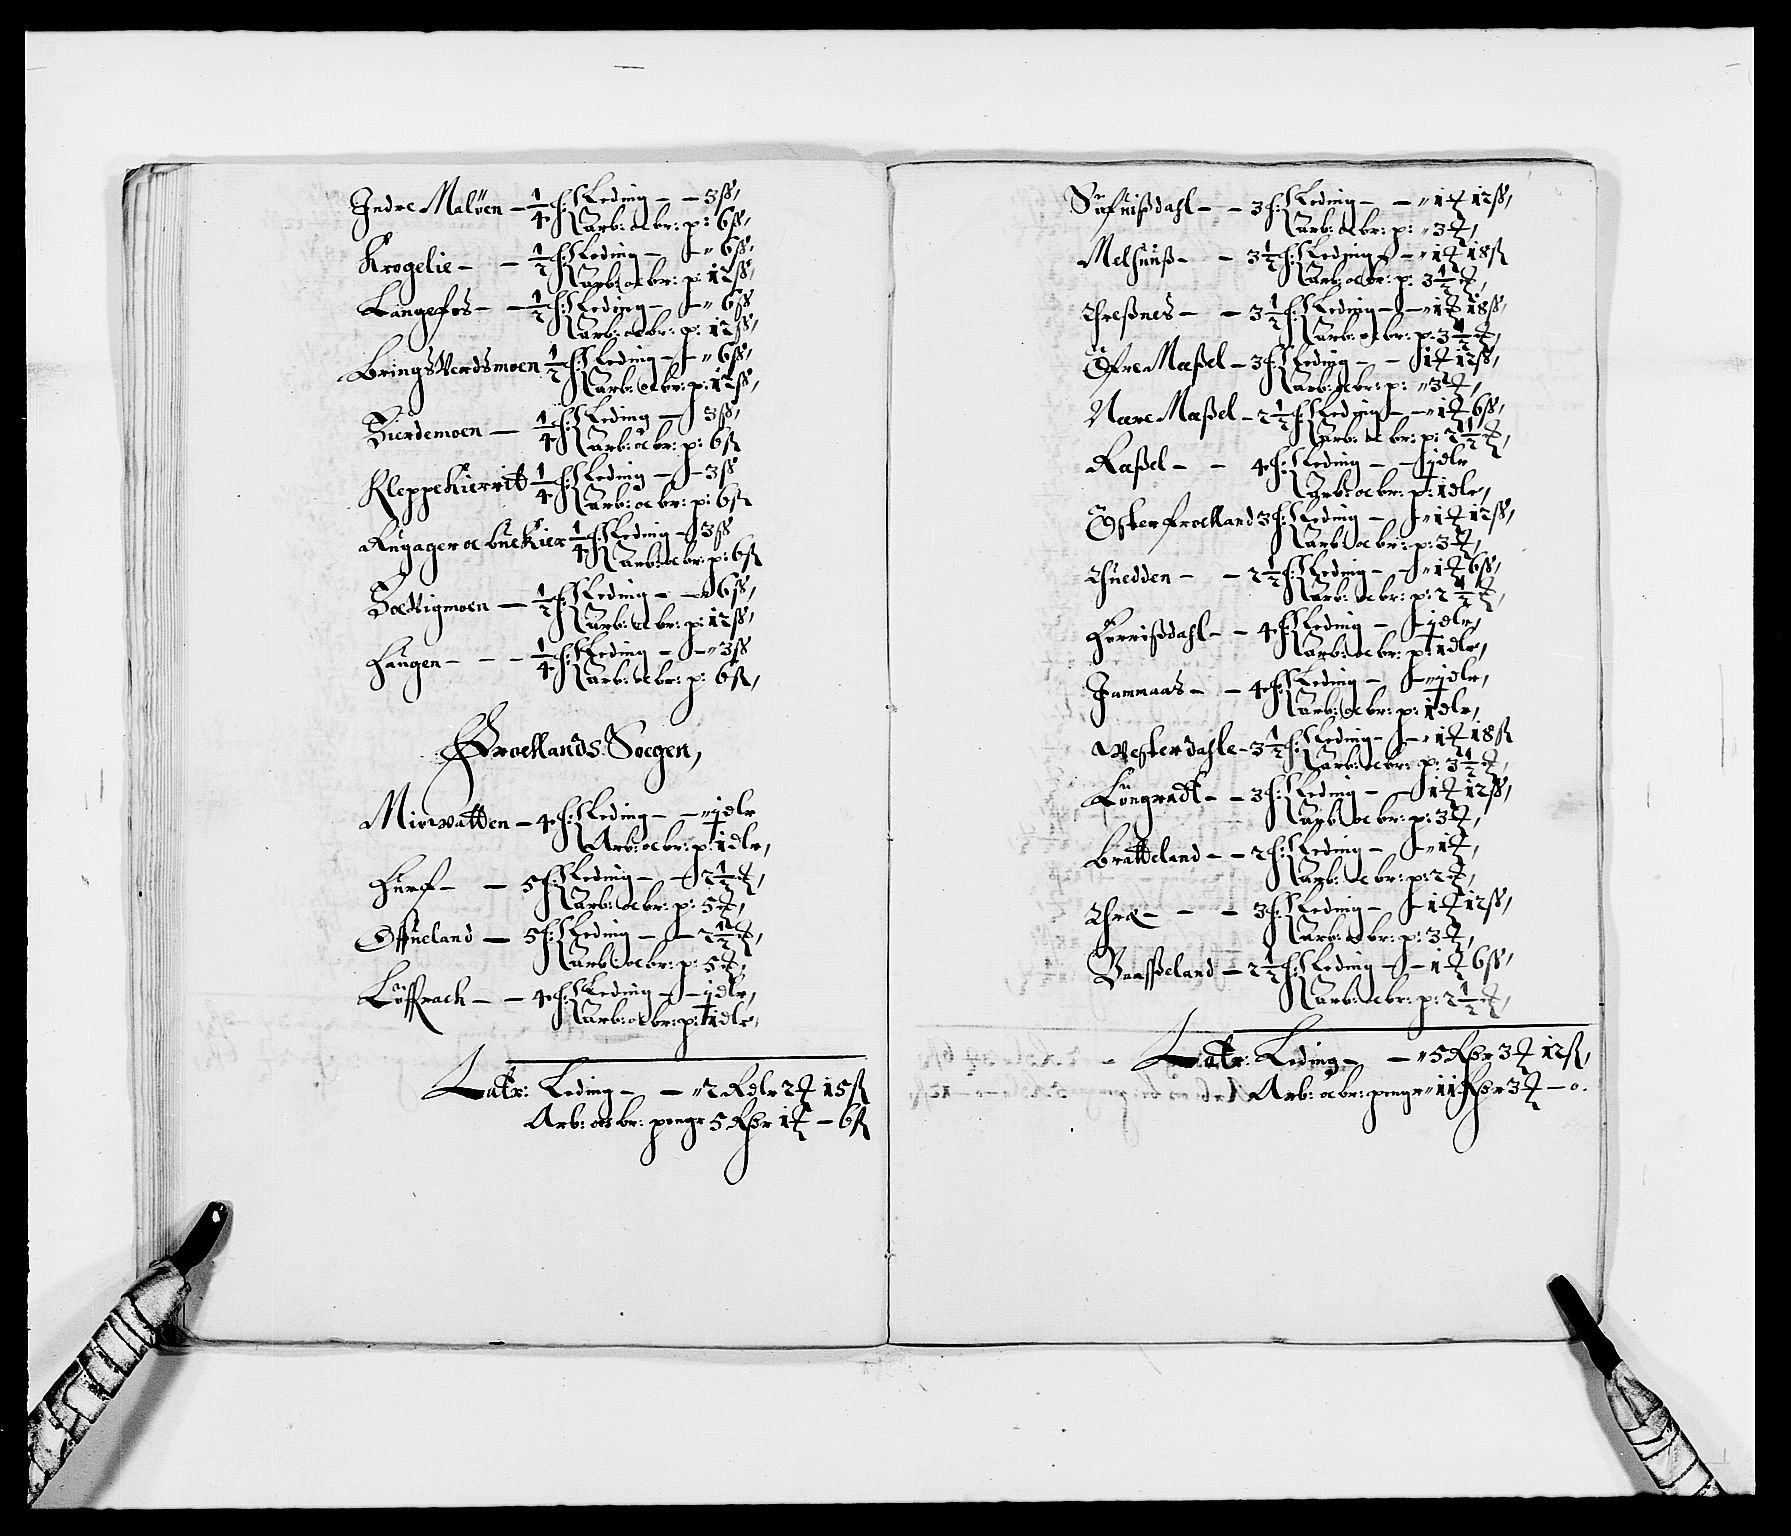 Indre Maløen – 1/4 h: Leding – – 3 ß,
Arb: oc br: p: 6 ß,
Krogelie – – 1/2 h: Leding – – 6 ß,
Arb: oc br: p: 12 ß,
Langefos – – 1/2 h: Leding – – 6 ß
Arb: oc br: p: 12 ß,
Bringsverdsmoen 1/2 h: Leding – – 6 ß,
Arb: oc br: p: 12 ß,
Hierdemoen – 1/4 h: Leding – 3 ß,
Arb: oc br: p: 6 ß
Kleppekierritt 1/4 h: Leding – – 3 ß
Arb: oc br: p: 6 ß
Rugager oc buckier 1/4 h: Leding – 3 ß
Arb: oc br: p: 6 ß
Bodtigmoen – 1/2 h: Leding – – 6 ß,
Arb: oc br: p: 12 ß,
Haugen – – – 1/4 h: Leding – – 3 ß
Arb: oc br: p: 6 ß,
Froellands Soegen,
Miøvatten – 4 h: Leding – – 1 dlr
Arb: oc br: p: 1 dlr,
Hurf – – 5 h: Leding – – 2 1/2 ₰,
Arb: oc br: p: 5 ₰,
Offueland – 5 h: Leding – – 2 1/2 ₰,
Arb: oc br: p: 5 ₰,
Løffrach – – 4 h: Leding – – 1 dlr,
Arb: oc br: p: 1 dlr,
Latr: Leding – – 2 Rdlr 2 ₰ 15 ß
Arb: oc br: penge 5 Rdr 1 ₰ – 6 ß
– – 3 h: Leding – – 1 ₰ 12 ß,
Arb: oc br: p: 3 ₰,
Melhuuß – – 3 1/2 h: Leding – – 1 ₰ 18 ß
Arb: oc br: p: 3 1/2 ₰,
Threßnes – – 3 1/2 h: Leding – – 1 ₰ 18 ß,
Arb: oc br: p: 3 1/2 ₰,
Øfre Mæßel – 3 h: Leding – – 1 ₰ 12 ß,
Arb: oc br: p: 3 ₰,
Nere Mæßel – 2 1/2 h: Leding – – 1 ₰ 6 ß,
Arb: oc br: p: 2 1/2 ₰,
Raßel – – 4 h: Leding – – 1 dlr
Arb: oc br: p: 1 dlr,
Øster froelland 3 h: Leding – – 1 ₰ 12 ß,
Arb: oc br: p: 3 ₰,
Thuedden – – 2 1/2 h: Leding – – 1 ₰ 6 ß,
Arb: oc br: p: 2 1/2 ₰,
Hørrißdahl – – 4 h: Leding – – 1 dlr,
Arb: oc br: p: 1 dlr,
Jammaas – – 4 h: Leding – – 1 dlr,
Arb: oc br: p: 1 dlr,
Westerdahle – 3 1/2 h: Leding – – 1 ₰ 18 ß
Arb: oc br: p: 3 1/2 ₰,
– – 3 h: Leding – – 1 ₰ 12 ß,
Arb: oc br: p: 3 ₰,
Bratteland – – 2 h: Leding – – 1 ₰,
Arb: oc br: p: 2 ₰,
Thræ – – – 3 h: Leding – – 1 ₰ 12 ß,
Arb: oc br: p: 3 ₰,
Vaaßeland – 2 1/2 h: Leding – – 1 ₰ 6 ß,
Arb: oc br: p: 2 1/2 ₰,
Latr: Leding – – 5 Rdr 3 ₰ 12 ß,
Arb: oc br: penge 11 Rdr 3 ₰ – 0.